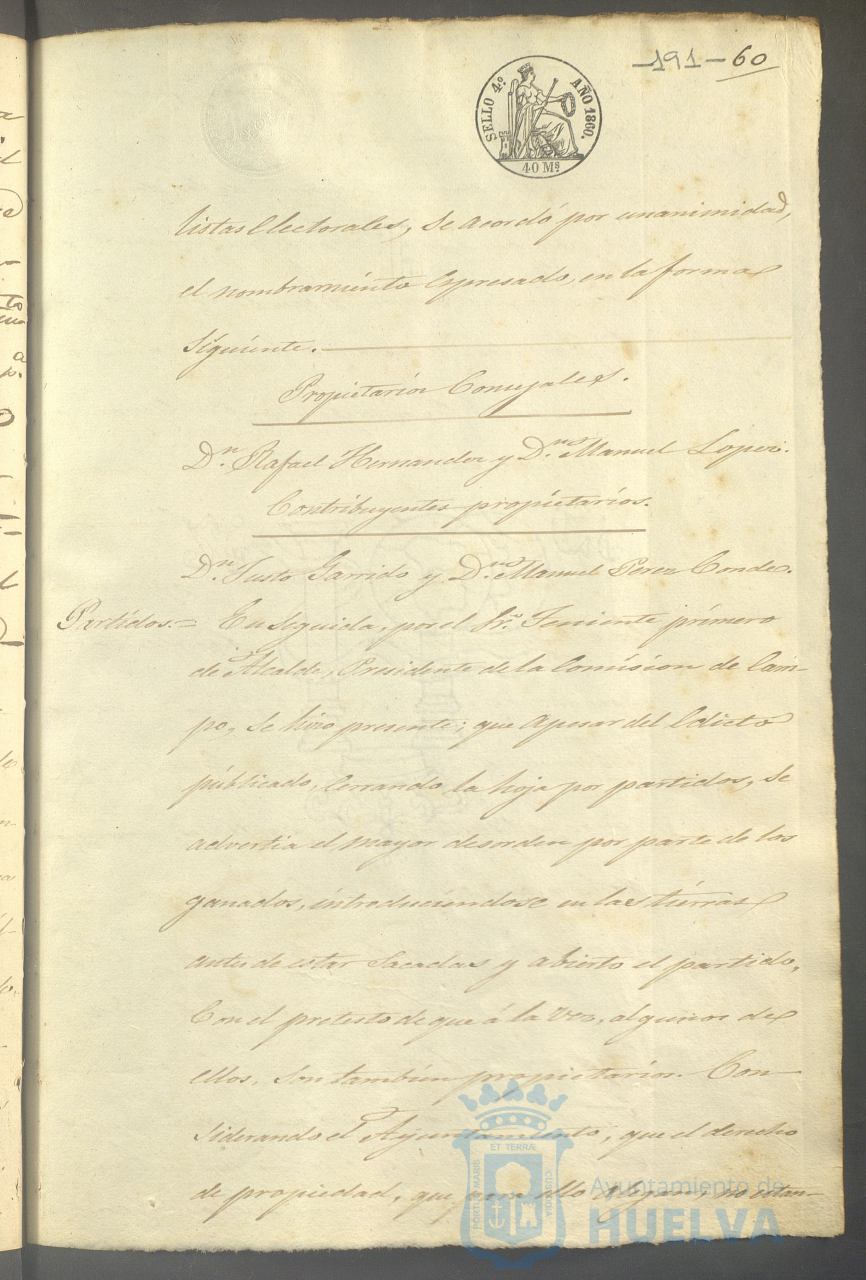 -191-60
SELLO 4º AÑO 1860.
40 Mˢ
listas Electorales, se acordó por unanimidad,
el nombramiento expresado, en la forma
siguiente.
Propietarios Consejales.
Dⁿ. Rafael Hernandez y Dⁿ. Manuel Lopez.
Contribuyentes propietarios.
Dⁿ. Justo Garrido y Dⁿ. Manuel Perez Conde.
Partidos.= En seguida, por el Sr. Teniente primero
de Alcalde, Presidente de la Comision de Cam-
po, se hizo presente; que apesar del Edicto
publicado, cerrando la hoja por partidos, se
advertia el mayor desorden por parte de los
ganados, introduciendose en las tierras
antes de estar sacadas y abierto el partido,
Con el pretesto de que á la vez, algunos de
ellos, son tambien propietarios. Con-
siderando el Ayuntamiento, que el derecho
de propiedad, que para ello alegan, no estan-
PORTUS MARIS ET TERRÆ CUSTODIA
Ayuntamiento de
HUELVA